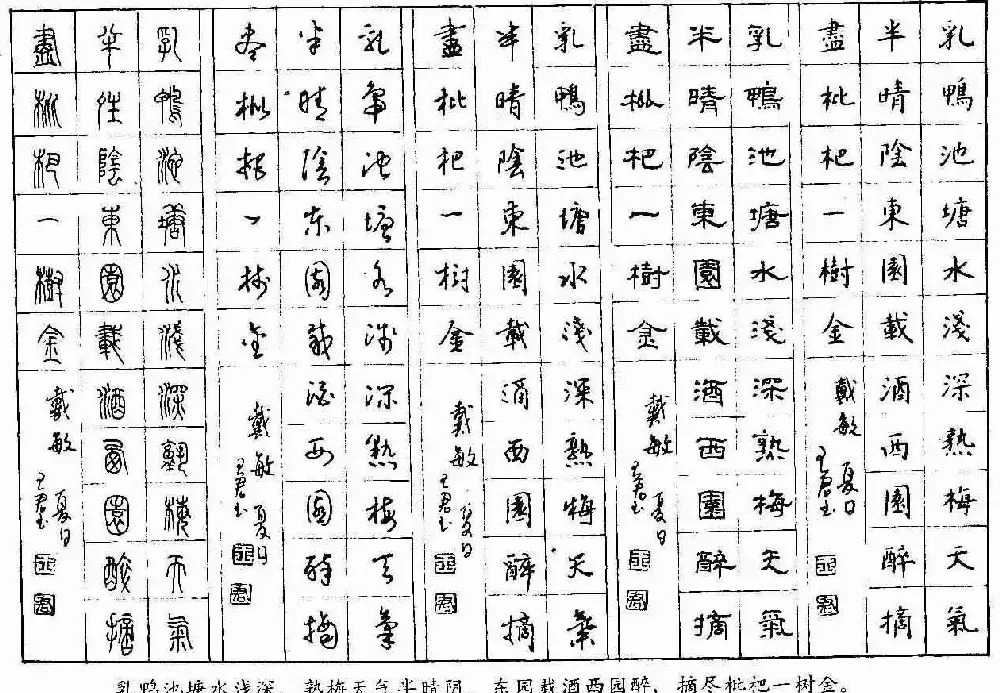 乳鴨池塘水淺深熟梅天氣
半晴陰東園載酒西園醉摘
盡枇杷一樹金
戴敏 夏日
乳鴨池塘水淺深熟梅天氣
半晴陰東園載酒西園醉摘
盡枇杷一樹金
戴敏 夏日
乳鴨池塘水淺深熟梅天氣
半晴陰東園載酒西園醉摘
盡枇杷一樹金
戴敏 夏日
乳鴨池塘水淺深熟梅天氣
半晴陰东園載酒西園醉摘
尽枇杷一樹金
戴敏 夏日
乳鴨池塘水淺深熟梅天氣
半姓陰東園載酒西園酸摘
盡枇杷一樹金
戴敏 夏日
乳鸭池塘水浅深，熟梅天气半晴阴。东园载酒西园醉，摘尽枇杷一树金。